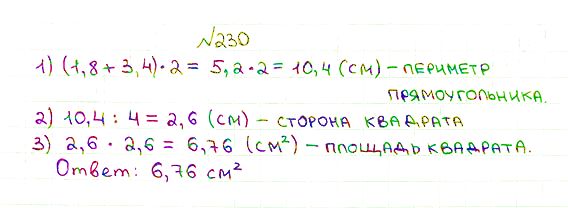 №230
1) (1,8 + 3,4) · 2 = 5,2 · 2 = 10,4 (см) – ПЕРИМЕТР
ПРЯМОУГОЛЬНИКА.
2) 10,4 : 4 = 2,6 (см) – СТОРОНА КВАДРАТА
3) 2,6 · 2,6 = 6,76 (см²) – ПЛОЩАДЬ КВАДРАТА.
Ответ: 6,76 см²